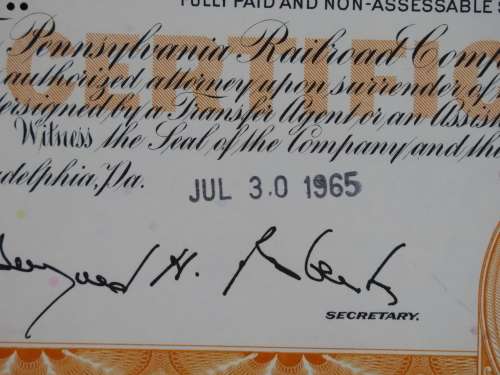 FULLY PAID AND NON-ASSESSABLE
Pennsylvania Railroad Comp
authorized attorney upon surrender of
dersigned by a Transfer Agent or an Assis
Witness the Seal of the Company and the
adelphia, Pa.
JUL 30 1965
H. Roberts
SECRETARY.
CERTIFIC